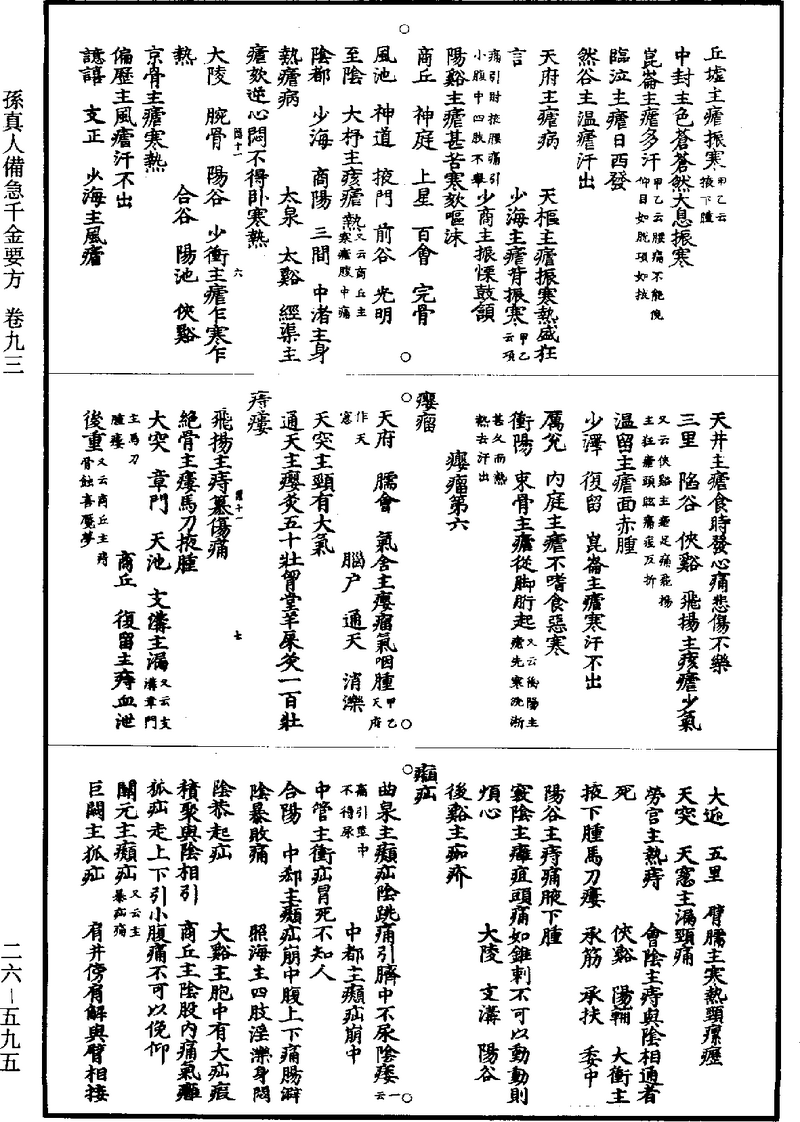 丘墟主瘧振寒甲乙云掖下腫
中封主色蒼蒼然大息振寒
崑崙主瘧多汗甲乙云腰痛不能俛仰目如脫項如拔
臨泣主瘧日西發
然谷主溫瘧汗出
天府主瘧病　天樞主瘧振寒熱盛狂
言　少海主瘧背振寒甲乙云項
痛引肘掖腰痛引小腹中四肢不舉少商主振慄鼓頷
陽谿主瘧甚苦寒欬嘔沫
商丘　神庭　上星　百會　完骨
風池　神道　掖門　前谷　光明
至陰　大杼主痎瘧熱又云商丘主寒瘧腹中痛
陰都　少海　商陽　三間　中渚主身
熱瘧病　太泉　太谿　經渠主
瘧欬逆心悶不得卧寒熱
大陵　腕骨　陽谷　少衝主瘧乍寒乍
熱　合谷　陽池　俠谿
京骨主瘧寒熱
偏歷主風瘧汗不出
譩譆　支正　少海主風瘧
天井主瘧食時發心痛悲傷不樂
三里　陷谷　俠谿　飛揚主痎瘧少氣
又云俠谿主瘧足痛飛揚主狂瘧頭眩痛痙反折
溫留主瘧面赤腫
少澤　復留　崑崙主瘧寒汗不出
厲兌　內庭主瘧不嗜食惡寒
衝陽　束骨主瘧從脚胻起又云衝陽主瘧先寒洗淅
甚久而熱熱去汗出
癭瘤第六
癭瘤
天府　臑會　氣舍主癭瘤氣咽腫甲乙天府
作天窓　腦户　通天　消濼
天突主頸有大氣
通天主癭灸五十壯胷堂羊屎灸一百壯
痔瘻
飛揚主痔篡傷痛
絕骨主瘻馬刀掖腫
大突　章門　天池　支溝主漏又云支溝章門
主馬刀腫瘻　商丘　復留主痔血泄
後重又云商丘主痔骨蝕喜魘夢
大迎　五里　臂臑主寒熱頸瘰癧
天突　天窓主漏頸痛
勞宮主熱痔　會陰主痔與陰相通者
死　俠谿　陽輔　大衝主
掖下腫馬刀瘻　承筋　承扶　委中
陽谷主痔痛腋下腫
竅陰主癰疽頭痛如錐刺不可以動動則
煩心　大陵　支溝　陽谷
後谿主痂疥
癩疝
曲泉主癩疝陰跳痛引臍中不尿陰痿一云
痛引莖中不得尿　中都主癩疝崩中
中管主衝疝冒死不知人
合陽　中郄主癩疝崩中腹上下痛腸澼
陰暴敗痛　照海主四肢淫濼身悶
陰恭起疝　大谿主胞中有大疝瘕
積聚與陰相引　商丘主陰股內痛氣癰
狐疝走上下引小腹痛不可以俛仰
關元主癩疝又云主暴疝痛
巨闕主狐疝　肩井傍肩解與臂相接
孫真人備急千金要方　卷九三
二六—五九五
陌十一
六
陌十一
七